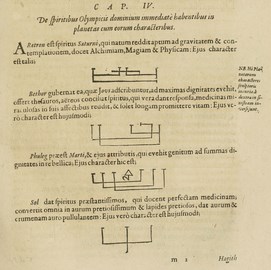 CAP. IV.
De spiritibus Olympicis dominium immediatè habentibus in
planetas cum eorum characteribus.
est spiritus Saturni, qui natum reddit aptum ad gravitatem & con-
templationem, docet Alchimiam, Magiam & Physicam: Ejus character
est talis:
Bethor gubernat ea, quæ Jovi adscribuntur, ad maximas dignitates evehit,
offert thesauros, aëreos conciliat spiritus, qui veridant responsa, medicinas mi-
vitam: Ejus ve-
rò character est hujusmodi:
Phaleg præest Marti, & ejus attributis, qui evehit genitum ad summas di-
gnitates in re bellica; Ejus character hic est:
Sol dat spiritus præstantissimos, qui docent perfectam medicinam;
convertit omnia in aurum pretiosissimum & lapides pretiosos, dat aurum &
crumenam auro pullulantem: Ejus verò character est hujusmodi:
m 2